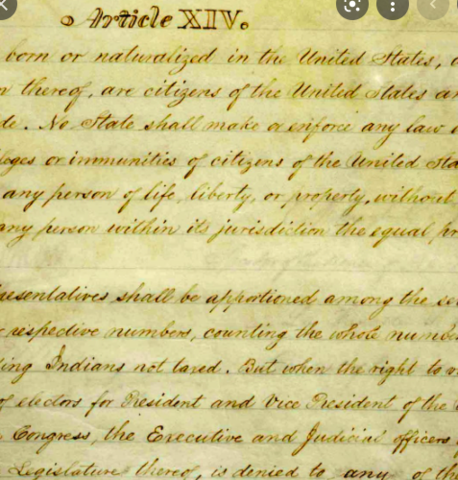 Article XIV.
born or naturalized in the United States,
thereof, are citizens of the United States
No State shall make or enforce any law
or immunities of citizens of the United
any person of life, liberty, or property, without
any person within its jurisdiction the equal
shall be apportioned among the
respective numbers, counting the whole
Indians not taxed. But when the right to
of electors for President and Vice President of the
Congress, the Executive and Judicial officers
Legislature thereof, is denied to any of